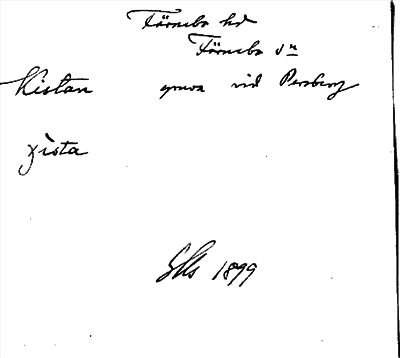 Färnebo hd
Färnebo sn
Kistan gruva vid Persberg
χista
SKs 1899